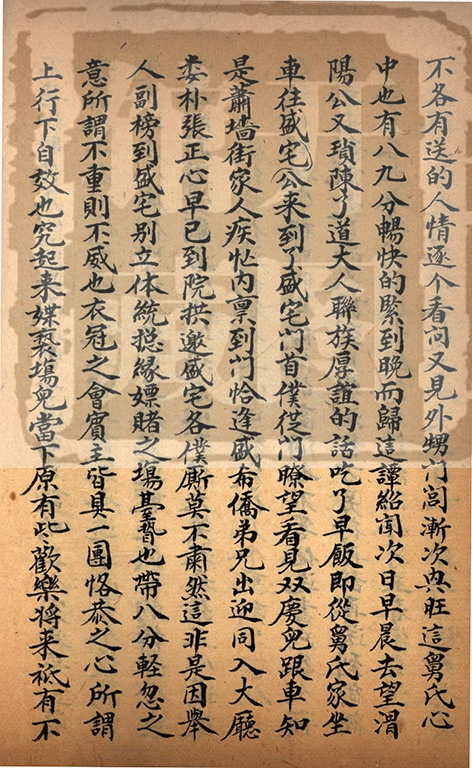 不各有送的人情逐个看问又見外甥門閭漸次典旺這舅氏心
中也有八九分暢快的緊到晚而歸這譚紹聞次日早晨去望渭
陽公又瑣陳了道大人聯族厚誼的話吃了早飯即從舅氏家坐
車往盛宅公来到了盛宅門首僕從門瞭望看見双慶兒跟車知
是蕭墙街家人疾忙内禀到門恰逢盛希僑弟兄出迎同入大廳
娄朴張正心早已到院拱邀盛宅各僕厮莫不肅然這非是因舉
人副榜到盛宅别立体統捴縁嫖賭之塲臺聱也帶八分軽忽之
意所謂不重則不威也衣冠之會賓主皆具一團恪恭之心所謂
上行下自效也究起来媟褻塲兒當下原有些歡樂将来祇有不